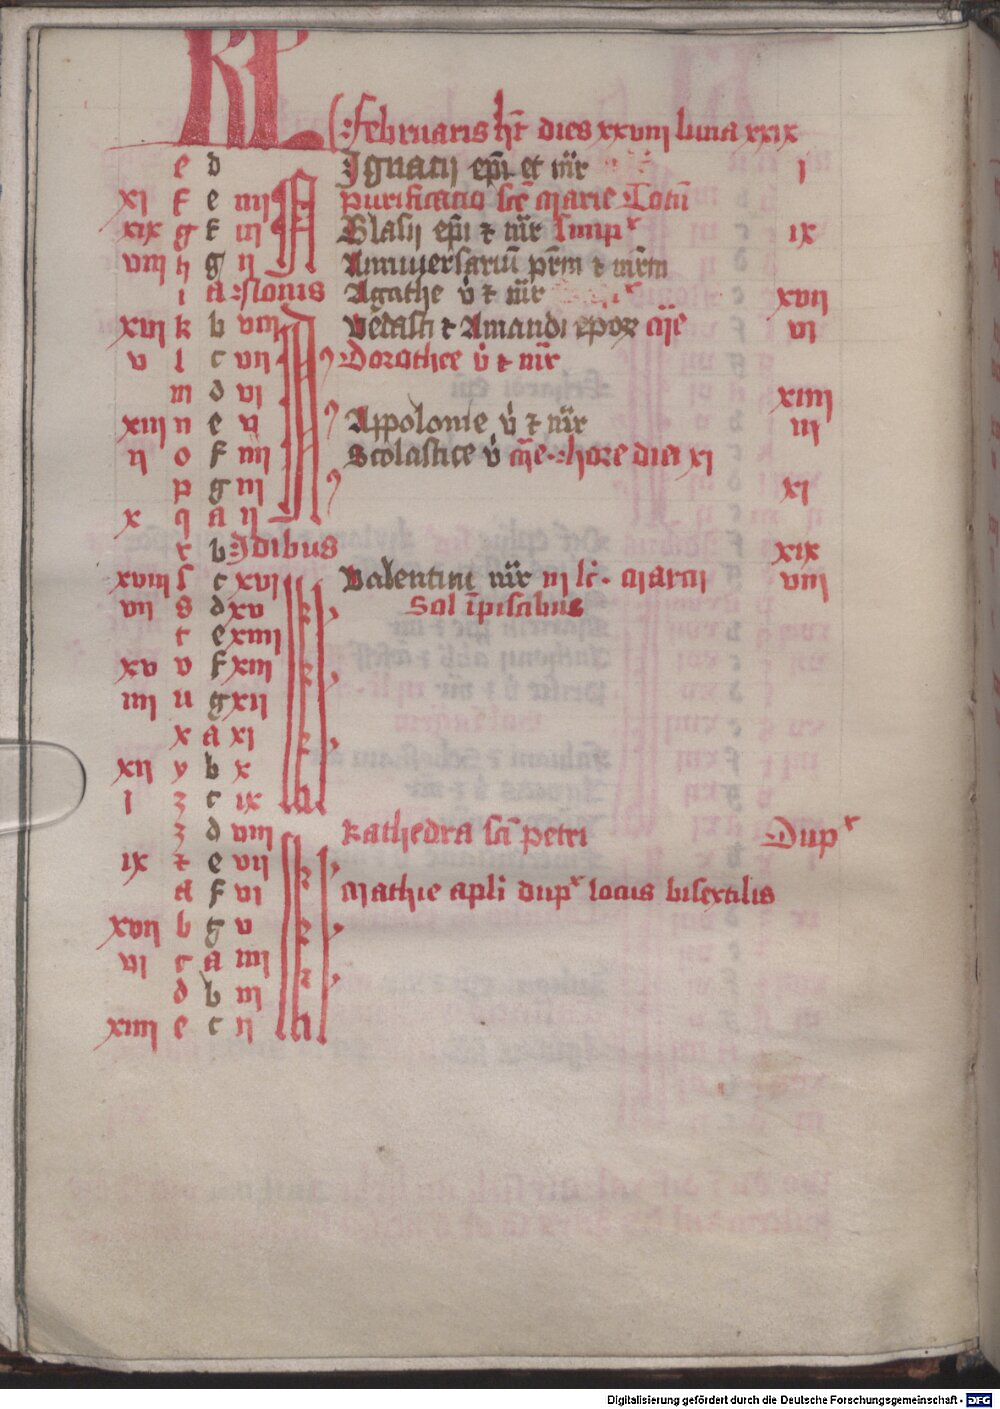 KL
Februarius ht dies xxviii luna xxix
e d Ignatii epi et mr i
xi f e iiii purificatio sce marie Totu
xix g f iii Blasii epi et mr simp ix
viii h g ii Anniversariu prm et mrm
i a Nonis Agathe v et mr xvii
xvi k b viii Vedasti et Amandi epor me vi
v l c vii Dorothee v et mr
m d vi xiiii
xiii n e v Appolonie v et mr iii
ii o f iiii Scolastice v me hore diei xi
p g iii xi
x q a ii
r b Idibus xix
xviii s c xvi Valentini mr iii kl marcii viii
vii s d xv Sol i piscibus
t e xiiii
xv v f xiii
iiii u g xii
x a xi
xii y b x
i z c ix
z d viii Kathedra sci petri Dup
ix z e vii
a f vi Mathie apli dup locus bisextilis
xvii b g v
vi c a iiii
d b iii
xiiii e c ii
Digitalisierung gefördert durch die Deutsche Forschungsgemeinschaft - DFG